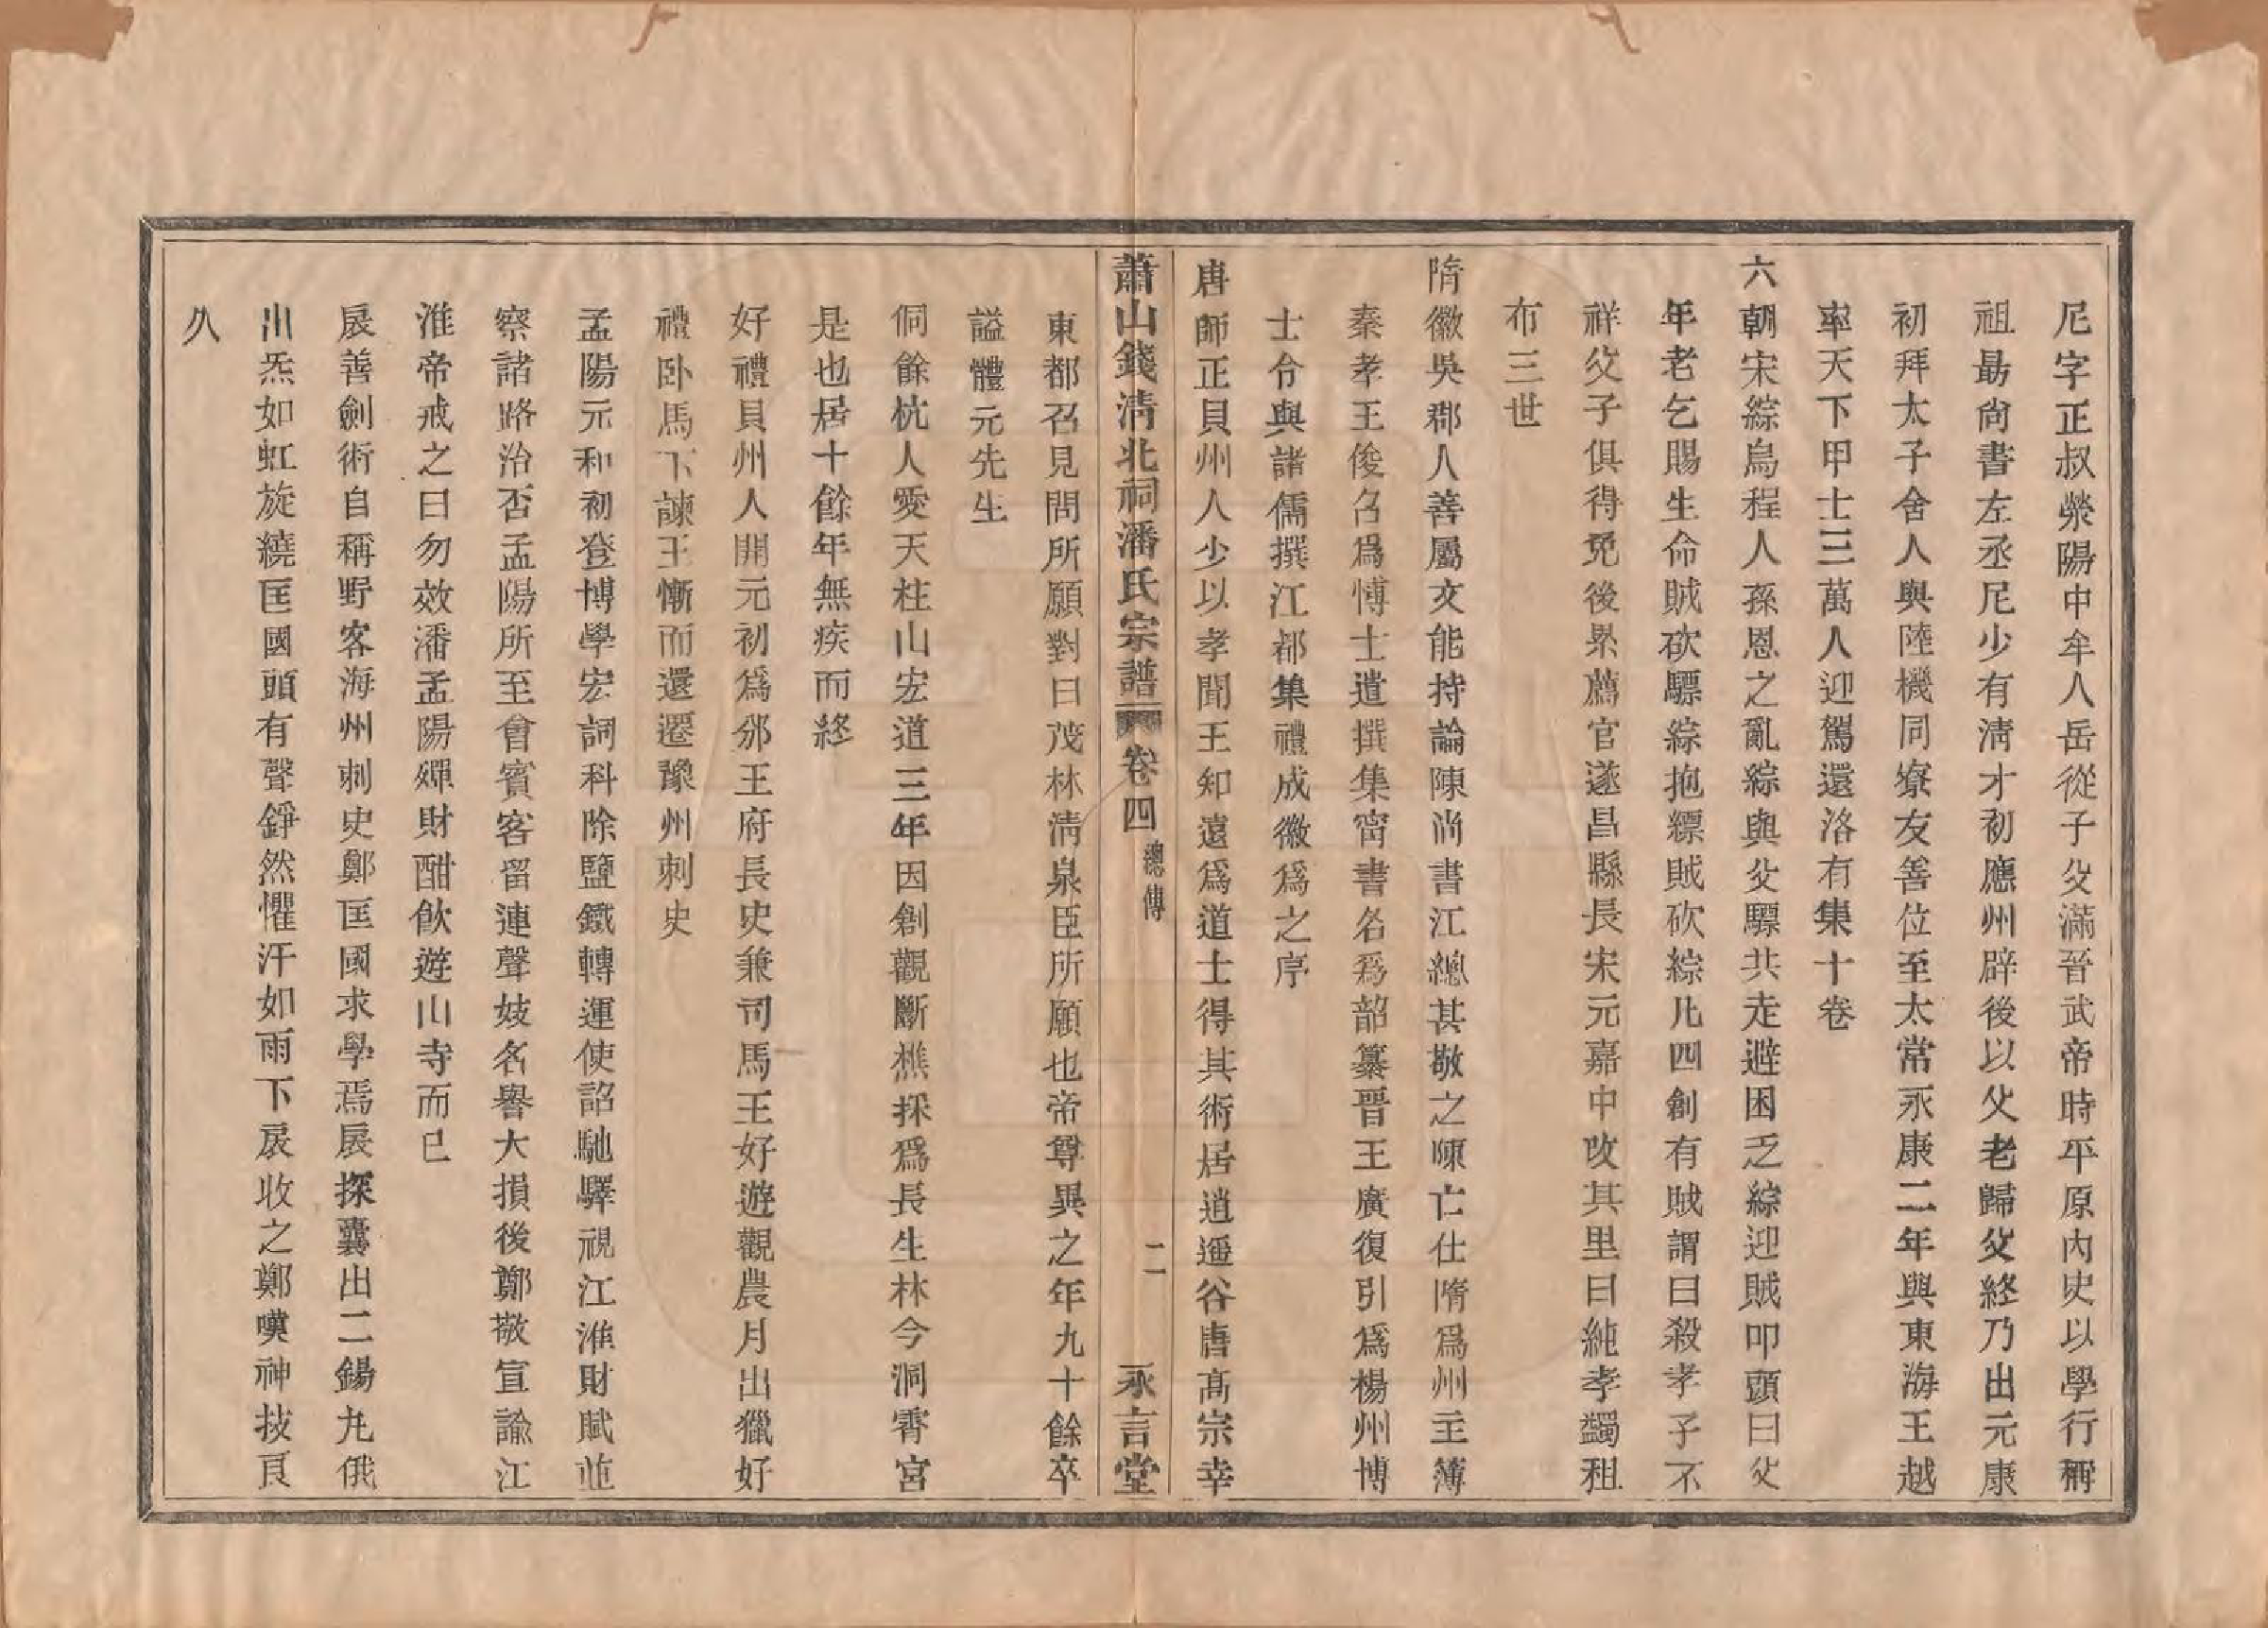 尼字正叔滎陽中牟人岳從子父滿晉武帝時平原內史以學行稱
祖勗尚書左丞尼少有淸才初應州辟後以父老歸父終乃出元康
初拜太子舍人與陸機同寮友善位至太常永康二年與東海王越
率天下甲士三萬人迎駕還洛有集十卷
六朝宋綜烏程人孫恩之亂綜與父驃共走避困乏綜迎賊叩頭曰父
年老乞賜生命賊砍驃綜抱縹賊砍綜凡四創有賊謂曰殺孝子不
祥父子俱得免後累薦官遂昌縣長宋元嘉中改其里曰純孝蠲租
布三世
隋徽吳郡人善屬文能持論陳尚書江總甚敬之陳亡仕隋爲州主簿
秦孝王俊召爲博士遣撰集字書名爲韻纂晉王廣復引爲楊州博
士令與諸儒撰江都集禮成徽爲之序
唐師正貝州人少以孝聞王知遠爲道士得其術居逍遥谷唐高宗幸
蕭山錢淸北祠潘氏宗譜 卷四 總傳 二 永言堂
東都召見問所願對曰茂林淸泉臣所願也帝尊異之年九十餘卒
謚體元先生
侗餘杭人愛天柱山宏道三年因創觀斷樵採爲長生林今洞霄宮
是也居十餘年無疾而終
好禮貝州人開元初爲邠王府長史兼司馬王好遊觀農月出獵好
禮卧馬下諫王慚而還遷豫州刺史
孟陽元和初登博學宏詞科除鹽鐵轉運使詔馳驛視江淮財賦並
察諸路治否孟陽所至會賓客留連聲妓名譽大損後鄭敬宣諭江
淮帝戒之曰勿效潘孟陽殫財酣飮遊山寺而已
扆善劍術自稱野客海州刺史鄭匡國求學焉扆探囊出二錫丸俄
出炁如虹旋繞匡國頭有聲錚然懼汗如雨下扆收之鄭嘆神技良
久